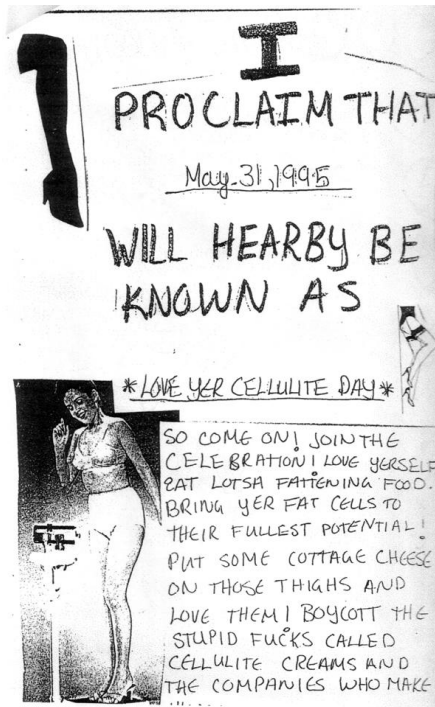 I
PROCLAIM THAT
May 31, 1995
WILL HEARBY BE
KNOWN AS
*LOVE YER CELLULITE DAY*
SO COME ON! JOIN THE
CELEBRATION! LOVE YERSELF
EAT LOTSA FATTENING FOOD.
BRING YER FAT CELLS TO
THEIR FULLEST POTENTIAL!
PUT SOME COTTAGE CHEESE
ON THOSE THIGHS AND
LOVE THEM! BOYCOTT THE
STUPID FUCKS CALLED
CELLULITE CREAMS AND
THE COMPANIES WHO MAKE